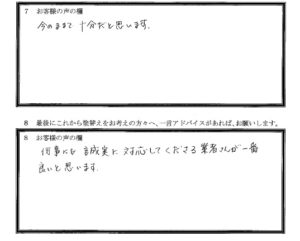 7 お客様の声の欄
今のままで十分だと思います。
8 最後にこれから塗替えをお考えの方々へ、一言アドバイスがあれば、お願いします。
8 お客様の声の欄
何事にも誠実に対応してくださる業者さんが一番
良いと思います。